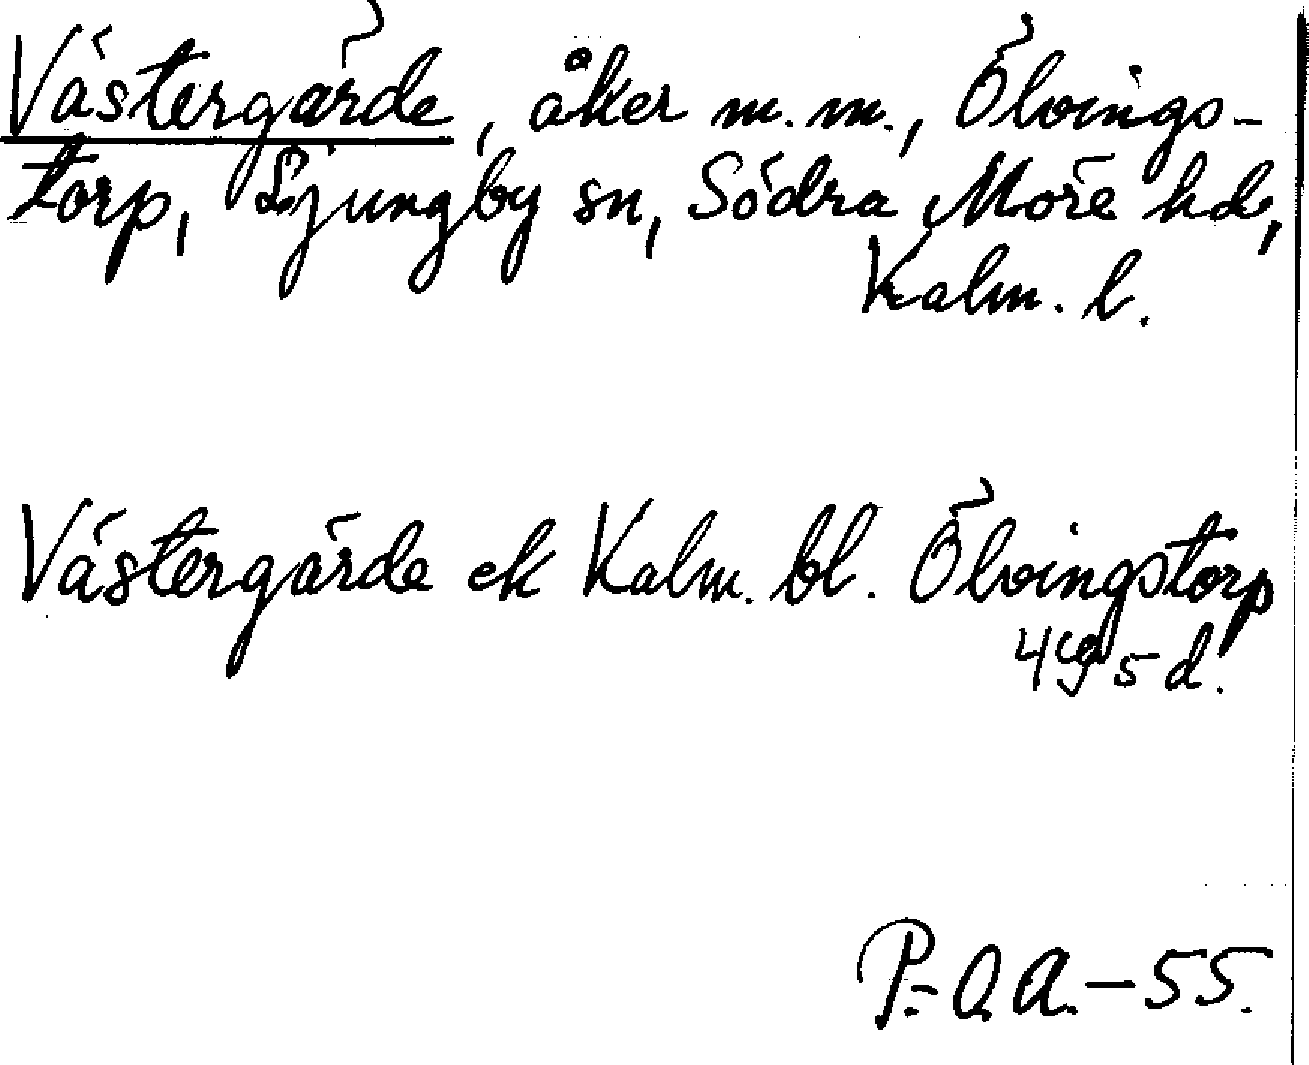 Västergärde, åker m.m., Ölvings-
torp, Ljungby sn, Södra Möre hd,
Kalm. l.
Västergärde ek Kalm. bl. Ölvingstorp
4g 5 d.
P.-O.A.-55.